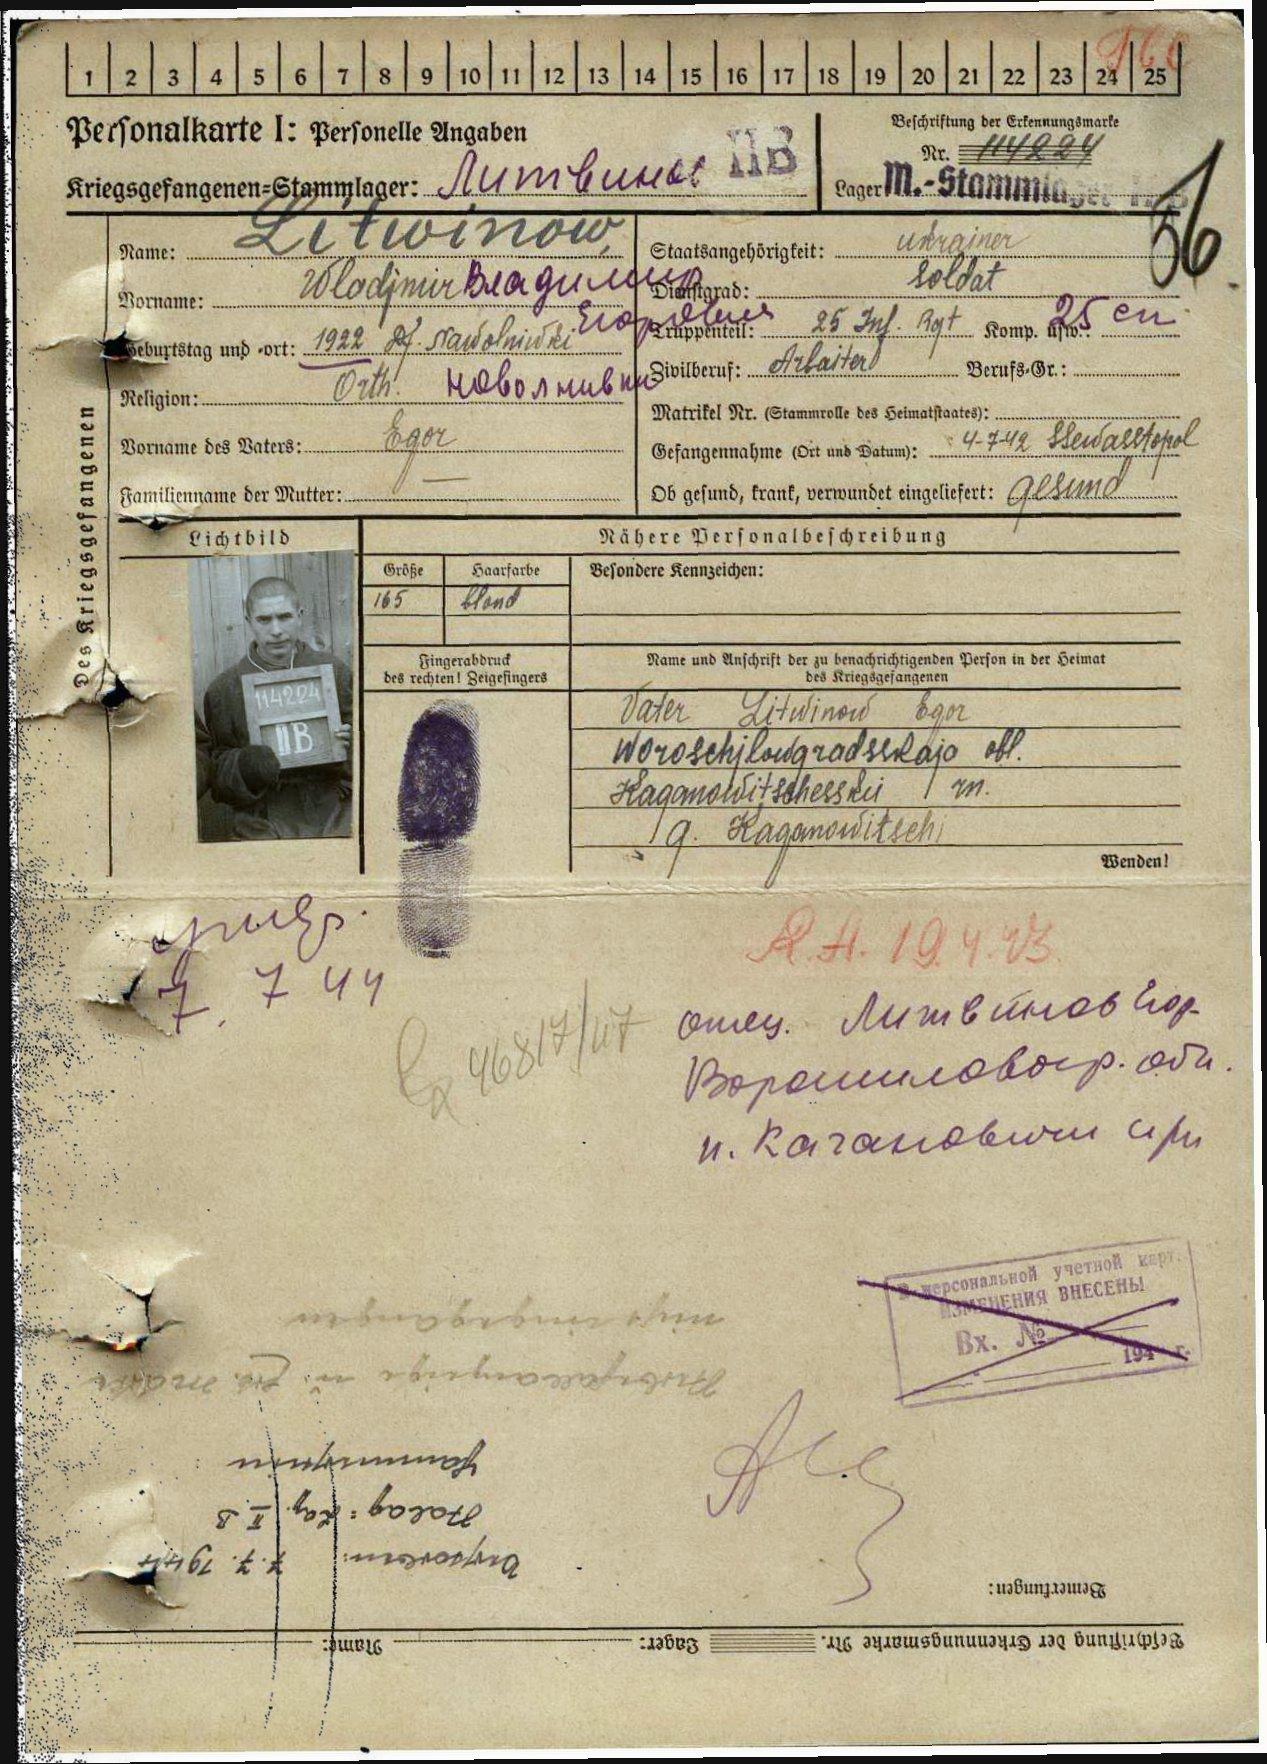 1 2 3 4 5 6 7 8 9 10 11 12 13 14 15 16 17 18 19 20 21 22 23 24 25
Personalkarte I: Personelle Angaben
Kriegsgefangenen=Stammlager: Литвинов IIB
Beschriftung der Erkennungsmarke
Nr. 114224
Lager M.-Stammlager
56
Des Kriegsgefangenen
Name: Litwinow,
Vorname: Wladjmir Владимир
Егорович
Geburtstag und =ort: 1922 Df. Nawolniwki
Religion: Orth. Новолнивки
Vorname des Vaters: Egor
Familienname der Mutter: —
Staatsangehörigkeit: Ukrainer
Dienstgrad: Soldat
Truppenteil: 25 Inf. Rgt Komp. usw.: 25 сп
Zivilberuf: Arbaiter Berufs=Gr.:
Matrikel Nr. (Stammrolle des Heimatstaates):
Gefangennahme (Ort und Datum): 4-7-42 Ssewasstopol
Ob gesund, krank, verwundet eingeliefert: gesund
Lichtbild
114224
IIB
Nähere Personalbeschreibung
Größe Haarfarbe Besondere Kennzeichen:
165 blond
Fingerabdruck
des rechten! Zeigefingers
Name und Anschrift der zu benachrichtigenden Person in der Heimat
des Kriegsgefangenen
Vater Litwinow Egor
Woroschjlowgradsskaja obl.
Kaganowitschesskii rn.
g. Kaganowitschi
Wenden!
7. 7 44
19.4.43.
46817/47
отец. Литвинов Егор
Ворошиловогр. обл.
п. Кагановичи
В персональной учетной карт.
ИЗМЕНЕНИЯ ВНЕСЕНЫ
Вх. №
194 г.
nicht eingegangen
Hammerstein
Stalag: Lag. II B
Verstorben: 7. 7. 1944
Bemerkungen:
Beschriftung der Erkennungsmarke Nr. Lager: Name: